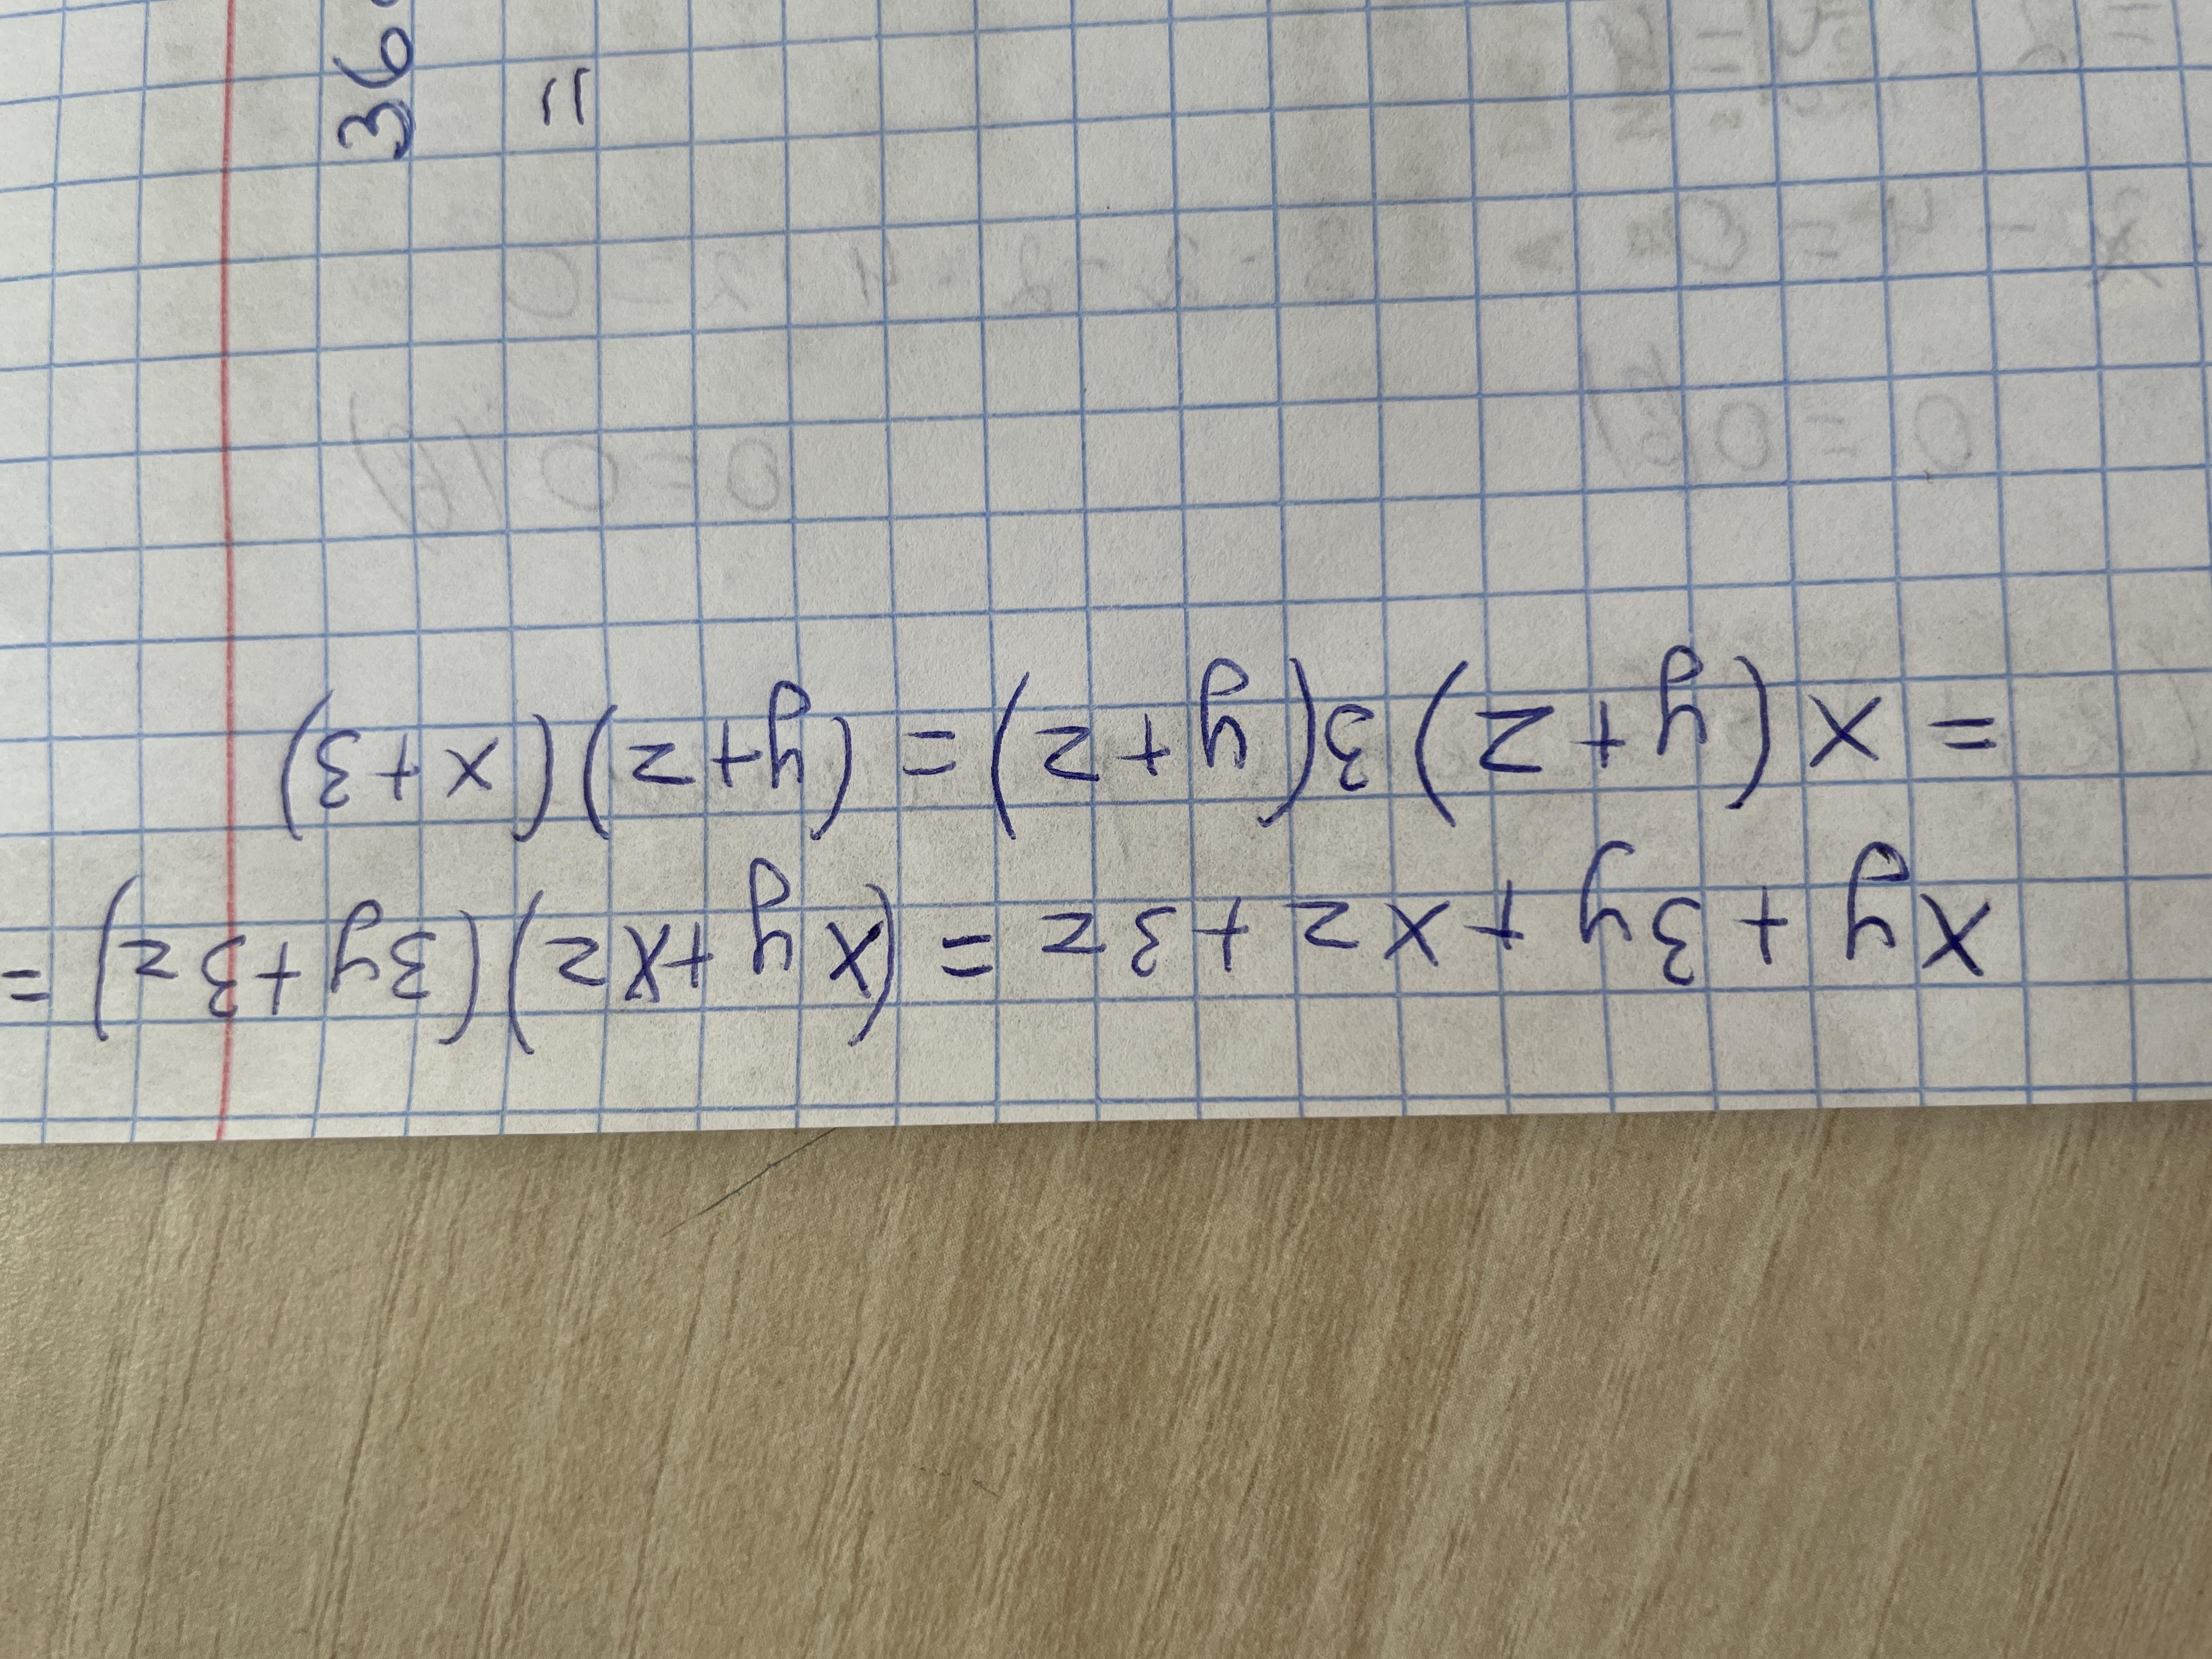 xy + 3y + xz + 3z = (xy + xz)(3y + 3z) =
= x(y + z)3(y + z) = (y + z)(x + 3)
36
=